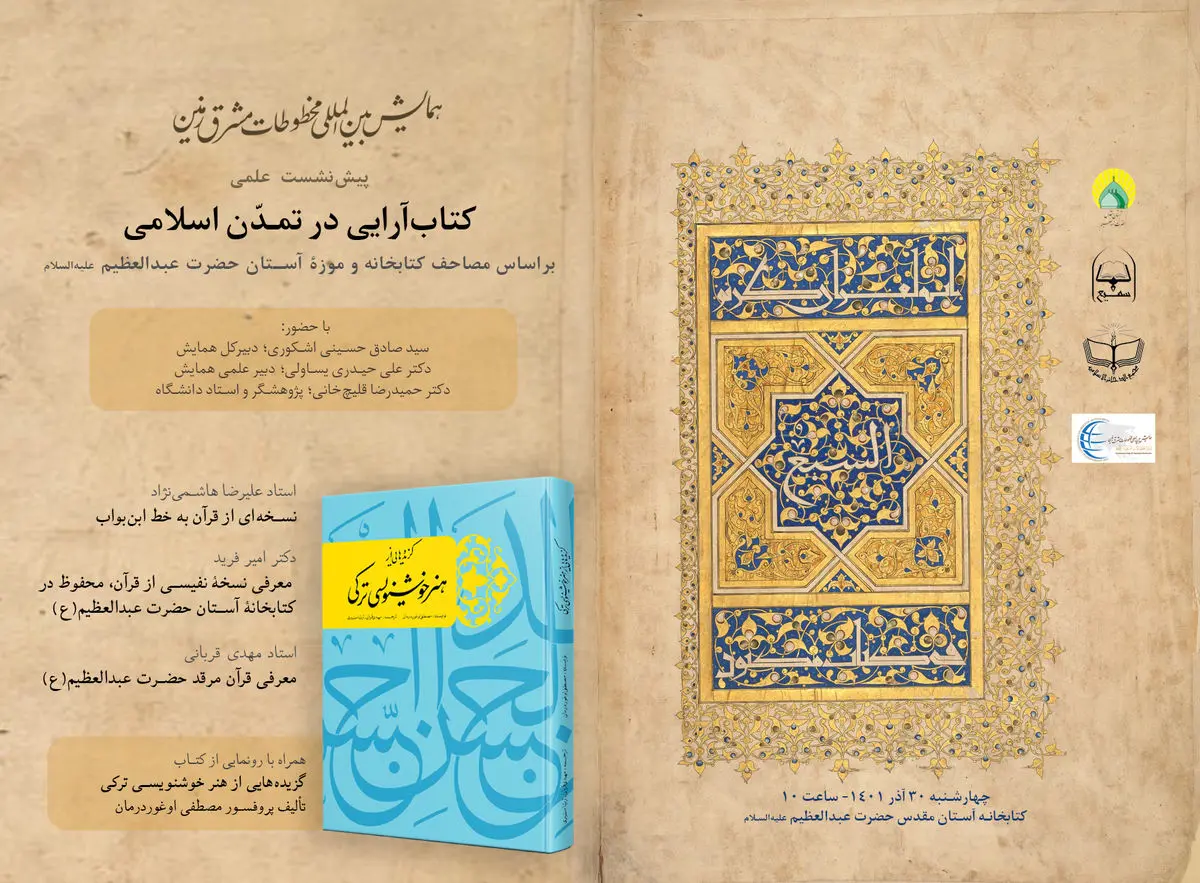 همایش بین‌المللی مخطوطات مشرق زمین
پیش‌نشست علمی
کتاب‌آرایی در تمدّن اسلامی
براساس مصاحف کتابخانه و موزهٔ آستان حضرت عبدالعظیم علیه‌السلام
با حضور:
سید صادق حسینی اشکوری؛ دبیرکل همایش
دکتر علی حیدری یساولی؛ دبیر علمی همایش
دکتر حمیدرضا قلیچ‌خانی؛ پژوهشگر و استاد دانشگاه
استاد علیرضا هاشمی‌نژاد
نسخه‌ای از قرآن به خط ابن‌بواب
دکتر امیر فرید
معرفی نسخهٔ نفیسی از قرآن، محفوظ در
کتابخانهٔ آستان حضرت عبدالعظیم(ع)
استاد مهدی قربانی
معرفی قرآن مرقد حضرت عبدالعظیم(ع)
همراه با رونمایی از کتاب
گزیده‌هایی از هنر خوشنویسی ترکی
تألیف پروفسور مصطفی اوغوردرمان
گزیده‌هایی از
هنر خوشنویسی ترکی
السبع
سمیع
چهارشنبه ۳۰ آذر ۱۴۰۱- ساعت ۱۰
کتابخانه آستان مقدس حضرت عبدالعظیم علیه‌السلام